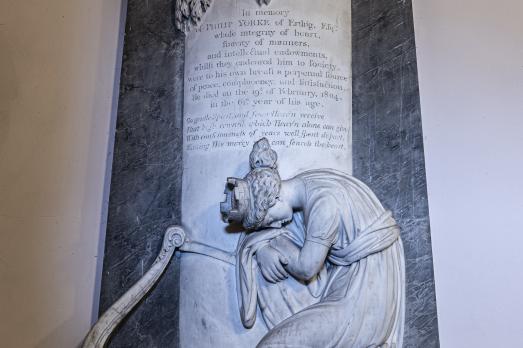 In memory
of PHILIP YORKE of Erthig, Esq.
whose integrity of heart,
suavity of manners,
and intellectual endowments,
whilst they endeared him to Society,
were to his own breast a perpetual source
of peace, complacency, and satisfaction.
He died on the 19th of February, 1804,
in the 61st year of his age.
Go gentle Spirit, and from Heav'n receive
That high reward which Heav'n alone can give;
With consciousness of years well spent depart,
Trusting His mercy who can search the heart.